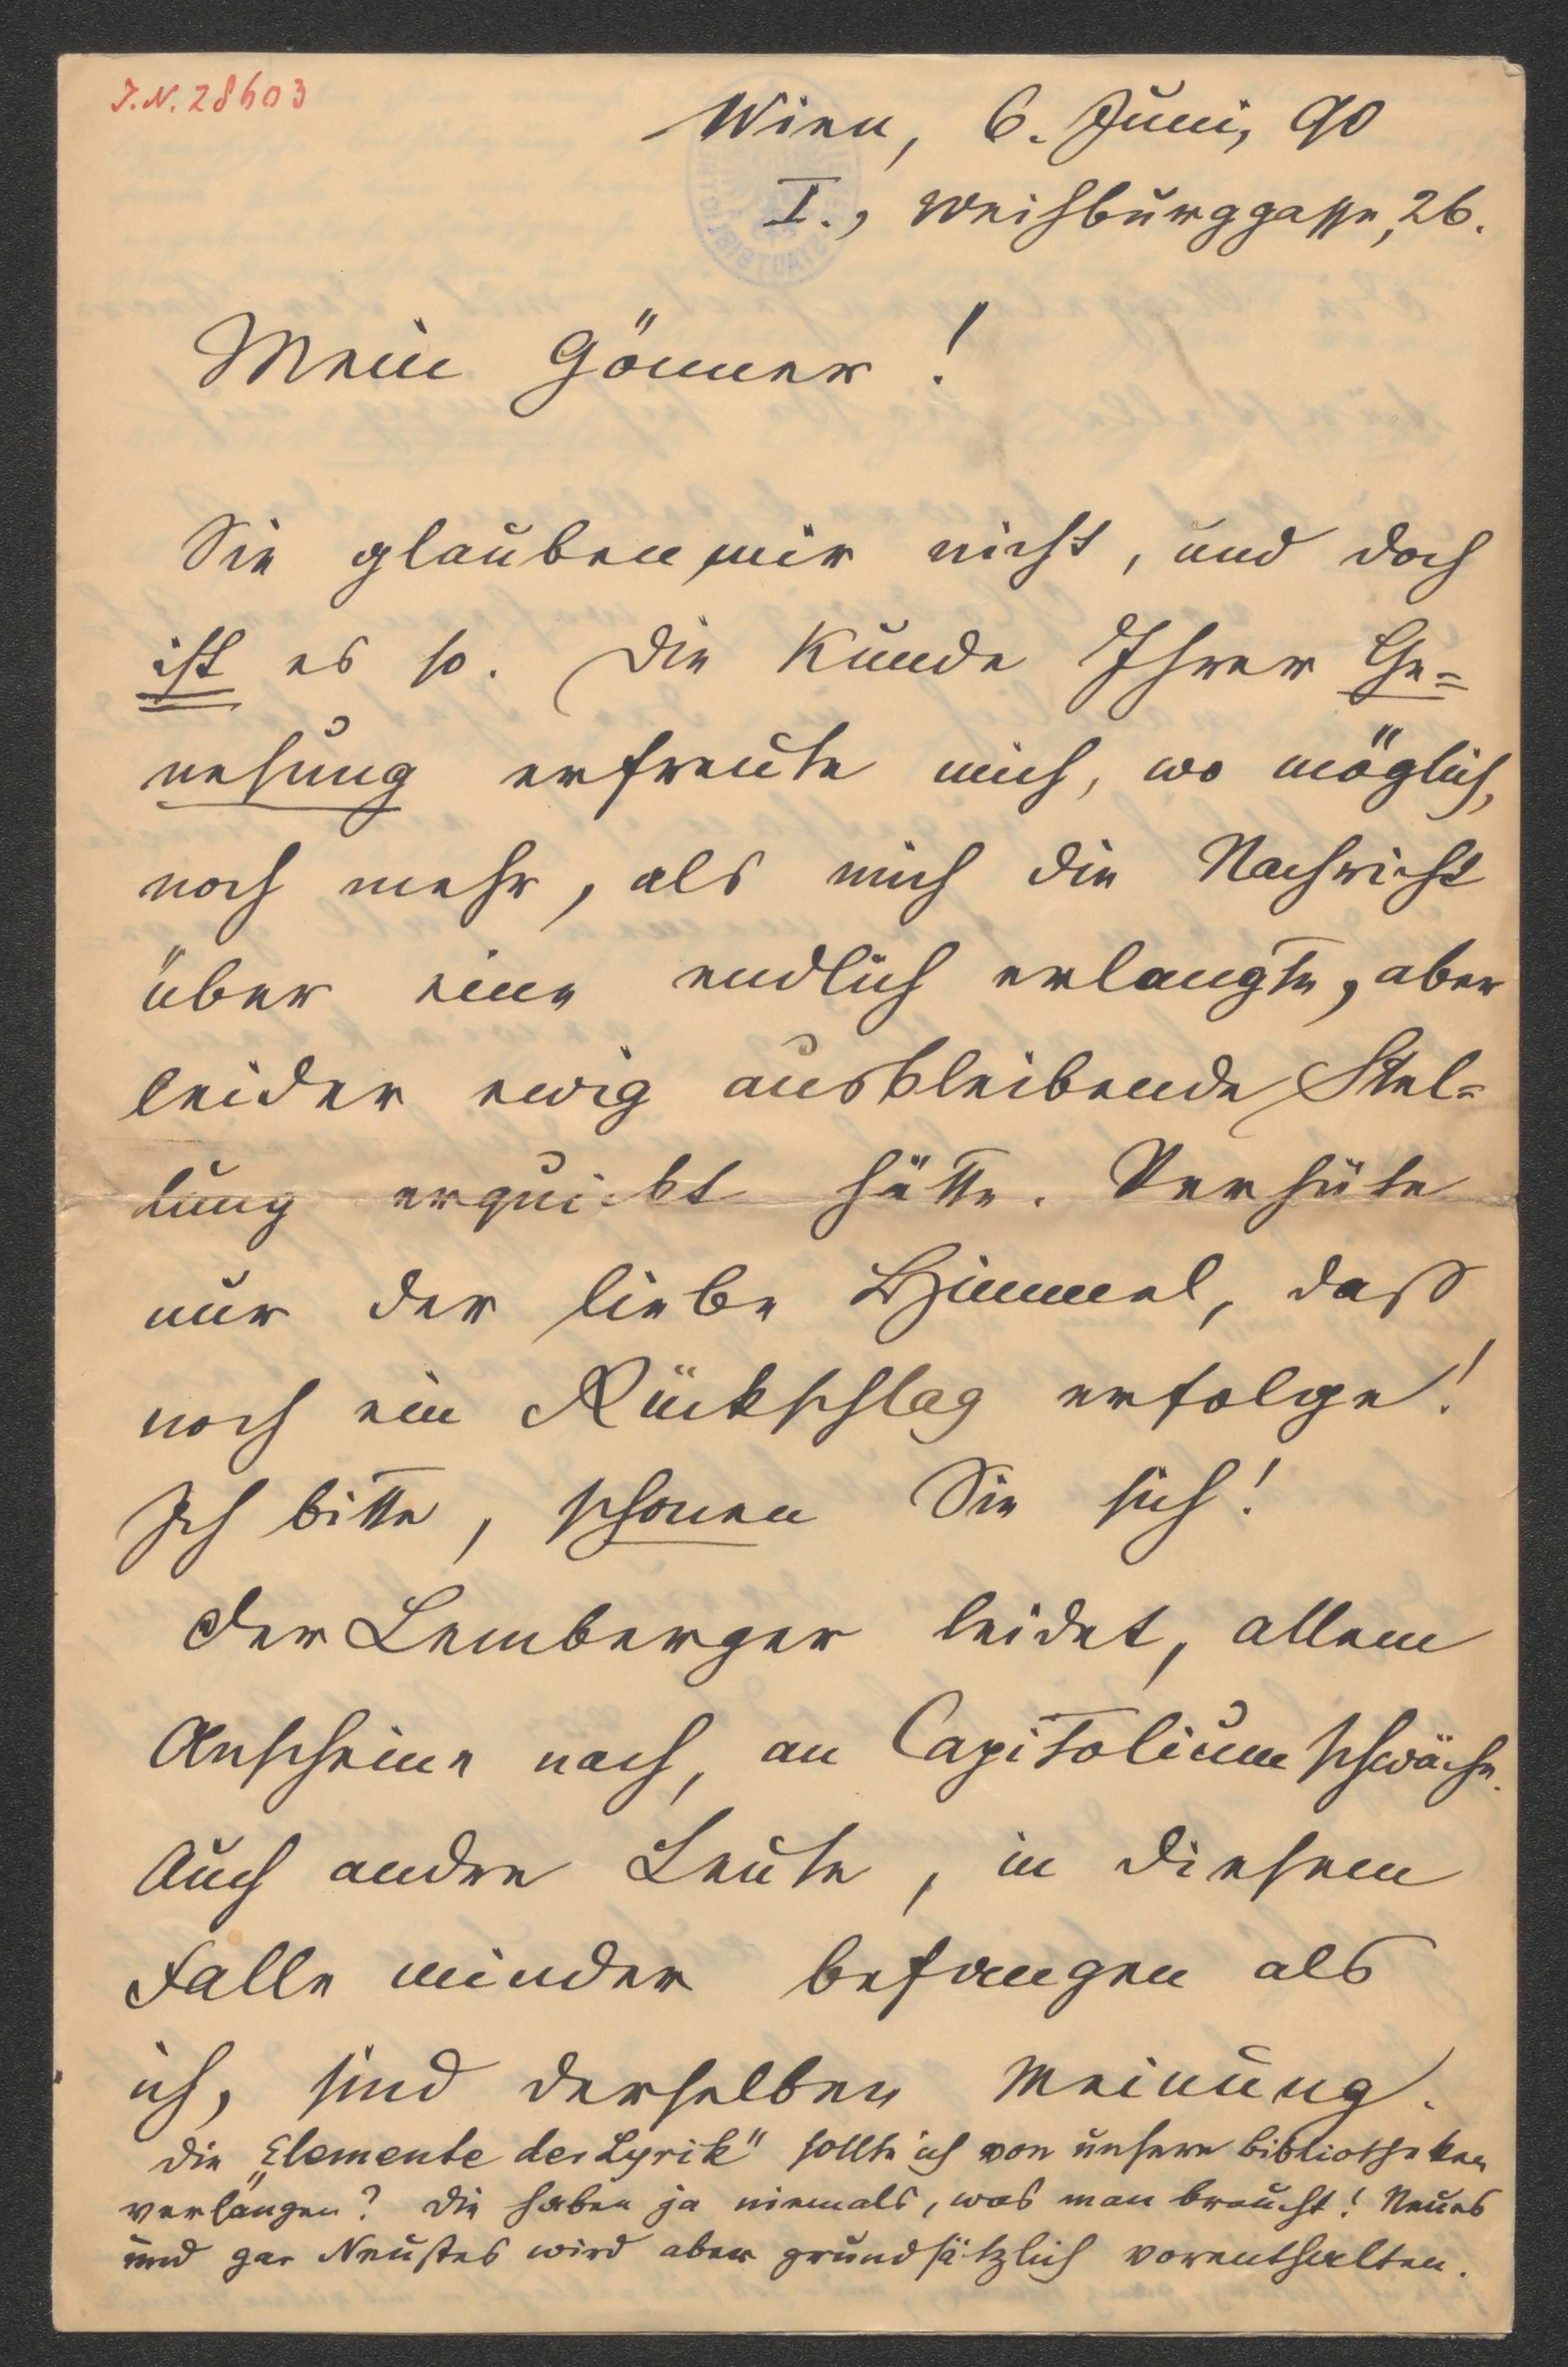 J.N. 28603
Wien, 6. Juni, 90
I., Weihburggasse, 26.
Mein Gönner!
Sie glauben mir nicht, und doch
ist es so. Die Kunde Ihrer Ge=
nesung erfreute mich, wo möglich,
noch mehr, als mich die Nachricht
über eine endlich erlangte, aber
leider ewig ausbleibende Stel=
lung erquickt hätte. Verhüte
nur der liebe Himmel, dass
noch ein Rückschlag erfolge!
Ich bitte, schonen Sie sich!
Der Lemberger leidet, allem
Anscheine nach, an Capitoliumschwäche.
Auch andre Leute, in diesem
Falle minder befangen als
ich, sind derselben Meinung.
Die „Elemente der Lyrik" sollte ich von unsern Bibliotheken
verlangen? Die haben ja niemals, was man braucht! Neues
und gar Neustes wird aber grundsätzlich vorenthalten.